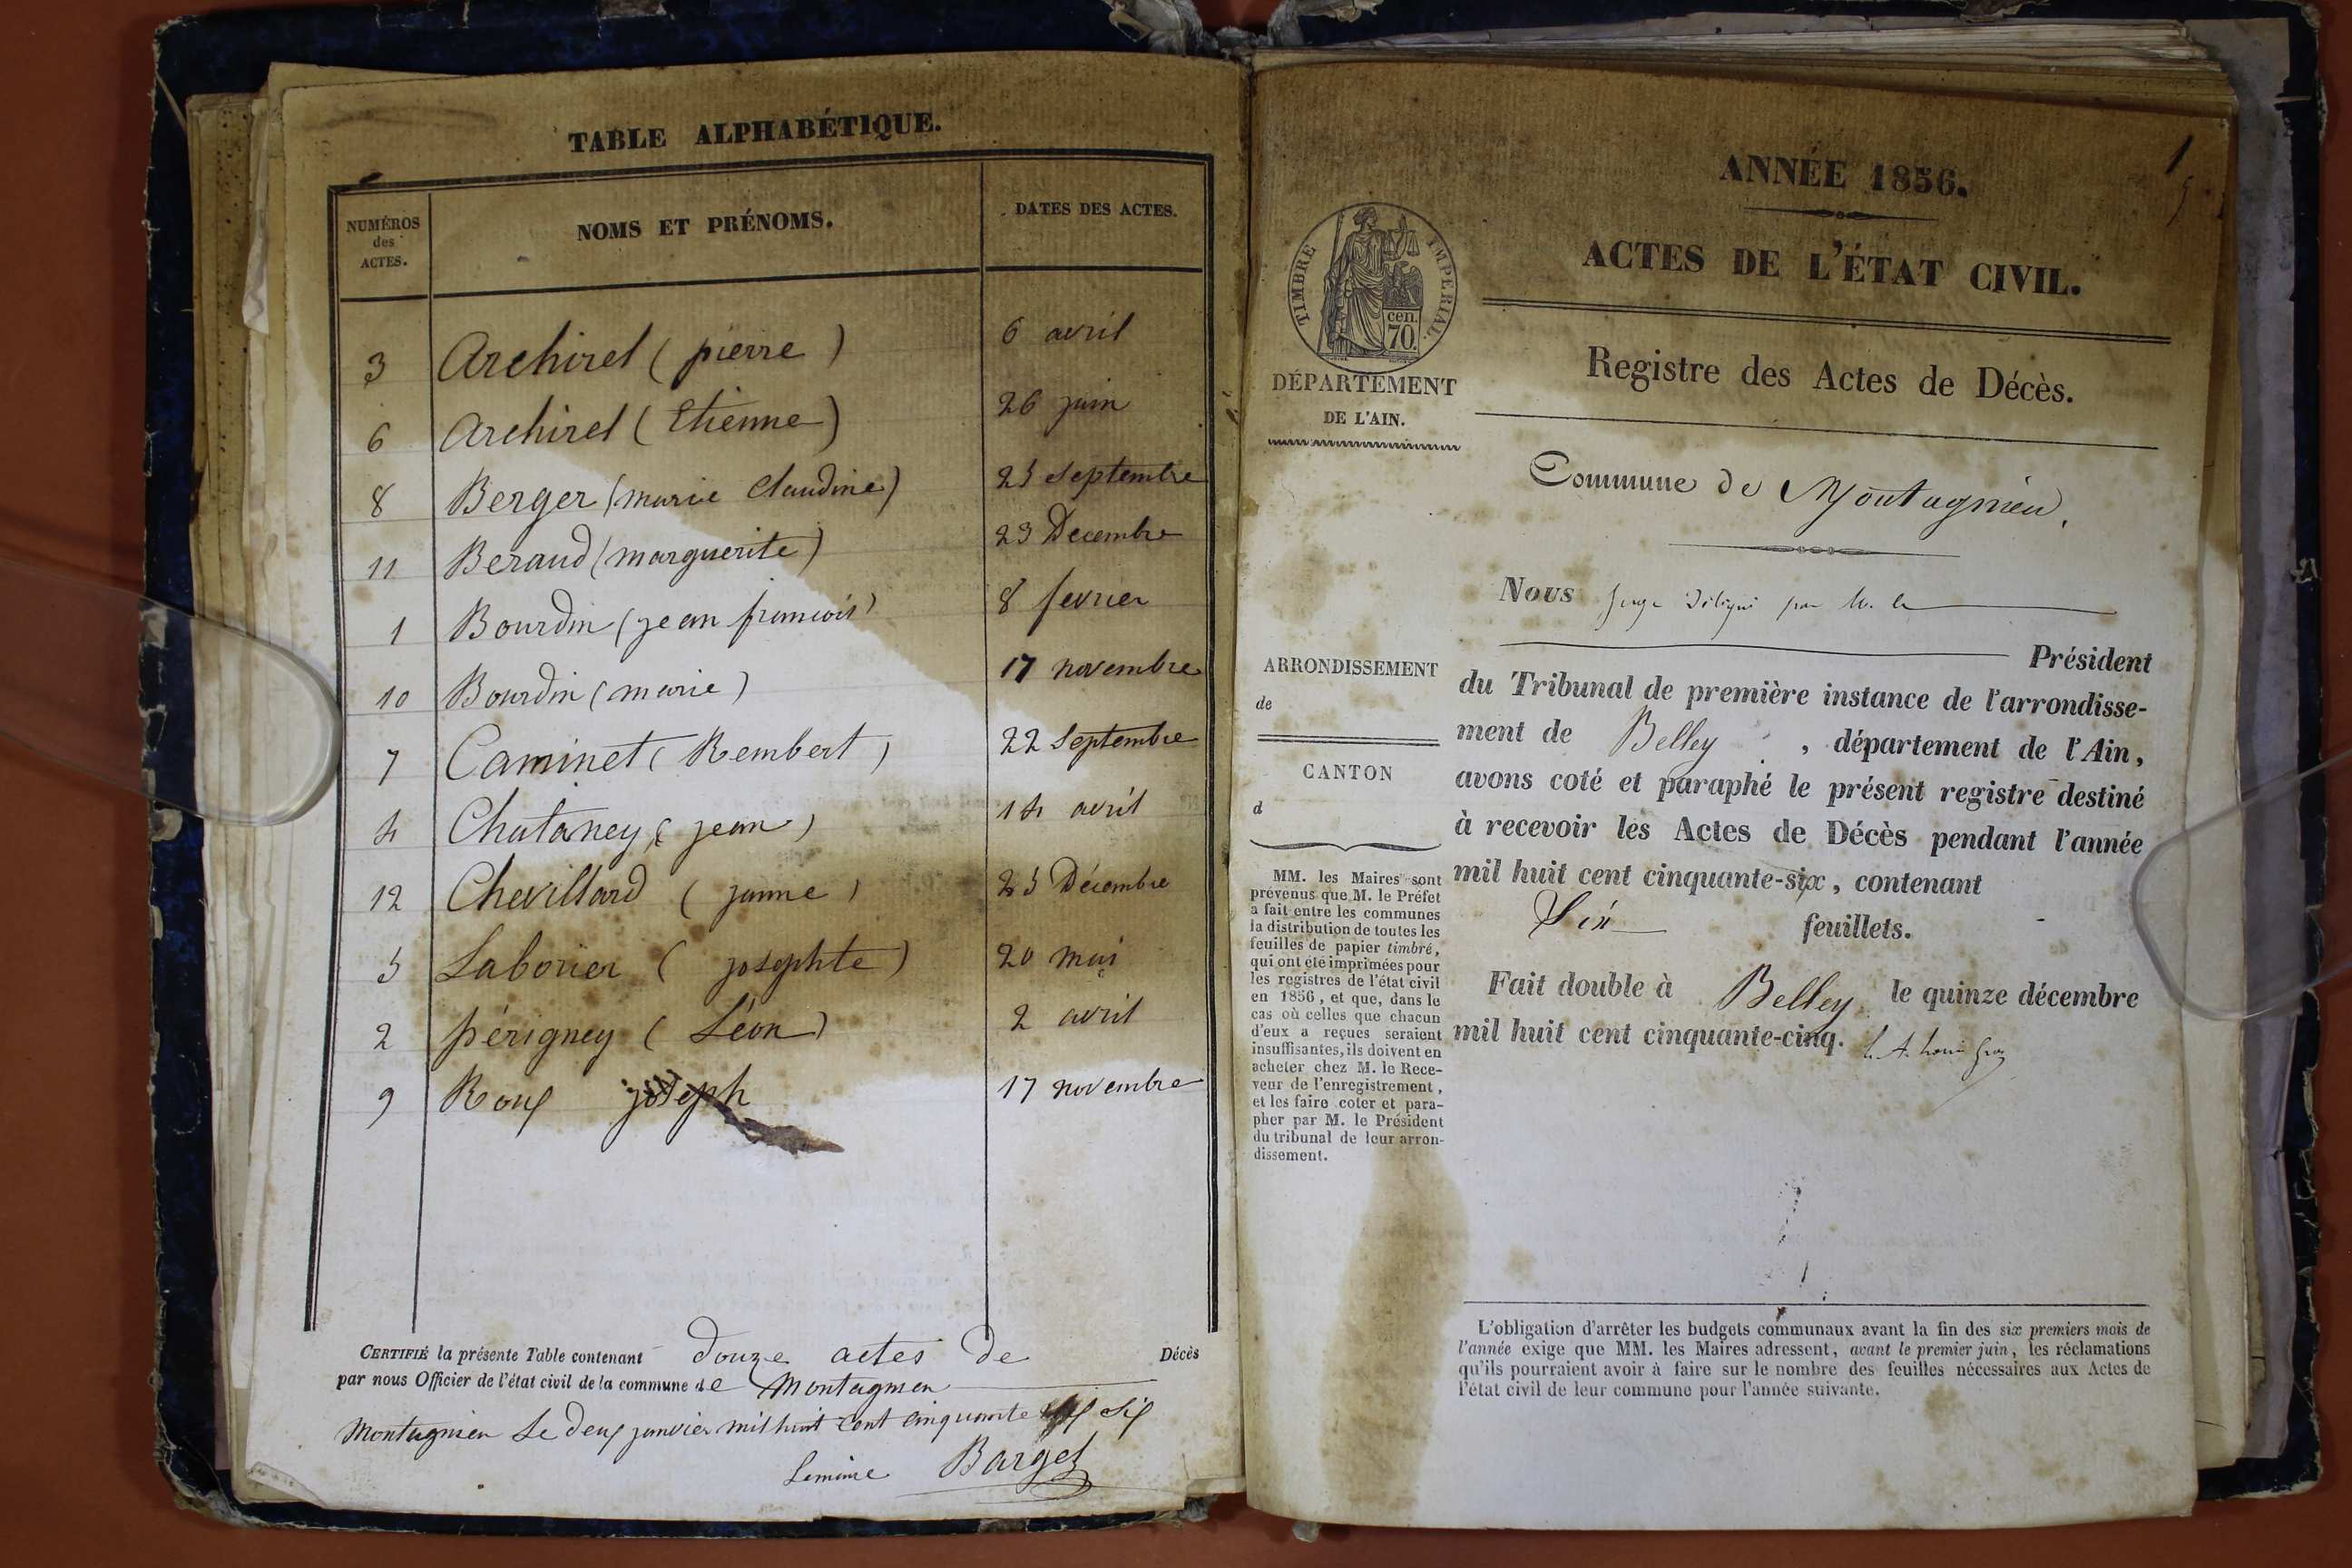 TABLE ALPHABÉTIQUE.
NUMÉROS
des
ACTES.
NOMS ET PRÉNOMS.
DATES DES ACTES.
3 Archirel (pierre) 6 avril
6 Archirel (Etienne) 26 juin
8 Berger (marie Claudine) 25 septembre
11 Beraud (marguerite) 23 Decembre
1 Bourdin (jean francois) 8 fevrier
10 Bourdin (marie) 17 novembre
7 Caminet (Rembert) 22 septembre
4 Chataney (jean) 14 avril
12 Chevillard (janne) 25 Décembre
5 Laborier (josephte) 20 mai
2 périgney (Léon) 2 avril
9 Roux joseph 17 novembre
CERTIFIÉ la présente Table contenant douze actes de Décès
par nous Officier de l'état civil de la commune de Montagnieu
Montagnieu Le deux janvier mil huit cent cinquante six
Lemaire Barget
1
ANNÉE 1856.
ACTES DE L'ÉTAT CIVIL.
TIMBRE IMPERIAL.
cen.
70.
DÉPARTEMENT
DE L'AIN.
Registre des Actes de Décès.
Commune de Montagnieu.
Nous juge délégué par M. le
Président
du Tribunal de première instance de l'arrondisse-
ment de Belley, département de l'Ain,
avons coté et paraphé le présent registre destiné
à recevoir les Actes de Décès pendant l'année
mil huit cent cinquante-six, contenant
Six feuillets.
Fait double à Belley, le quinze décembre
mil huit cent cinquante-cinq.
ARRONDISSEMENT
de
CANTON
d
MM. les Maires sont
prévenus que M. le Préfet
a fait entre les communes
la distribution de toutes les
feuilles de papier timbré,
qui ont été imprimées pour
les registres de l'état civil
en 1856, et que, dans le
cas où celles que chacun
d'eux a reçues seraient
insuffisantes, ils doivent en
acheter chez M. le Rece-
veur de l'enregistrement,
et les faire coter et para-
pher par M. le Président
du tribunal de leur arron-
dissement.
L'obligation d'arrêter les budgets communaux avant la fin des six premiers mois de
l'année exige que MM. les Maires adressent, avant le premier juin, les réclamations
qu'ils pourraient avoir à faire sur le nombre des feuilles nécessaires aux Actes de
l'état civil de leur commune pour l'année suivante.